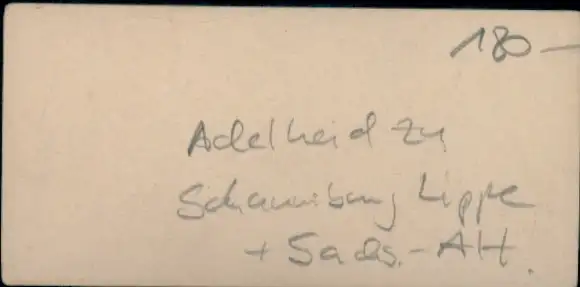 180—
Adelheid zu
Schaumburg Lippe
+ Sachs.-Alt.